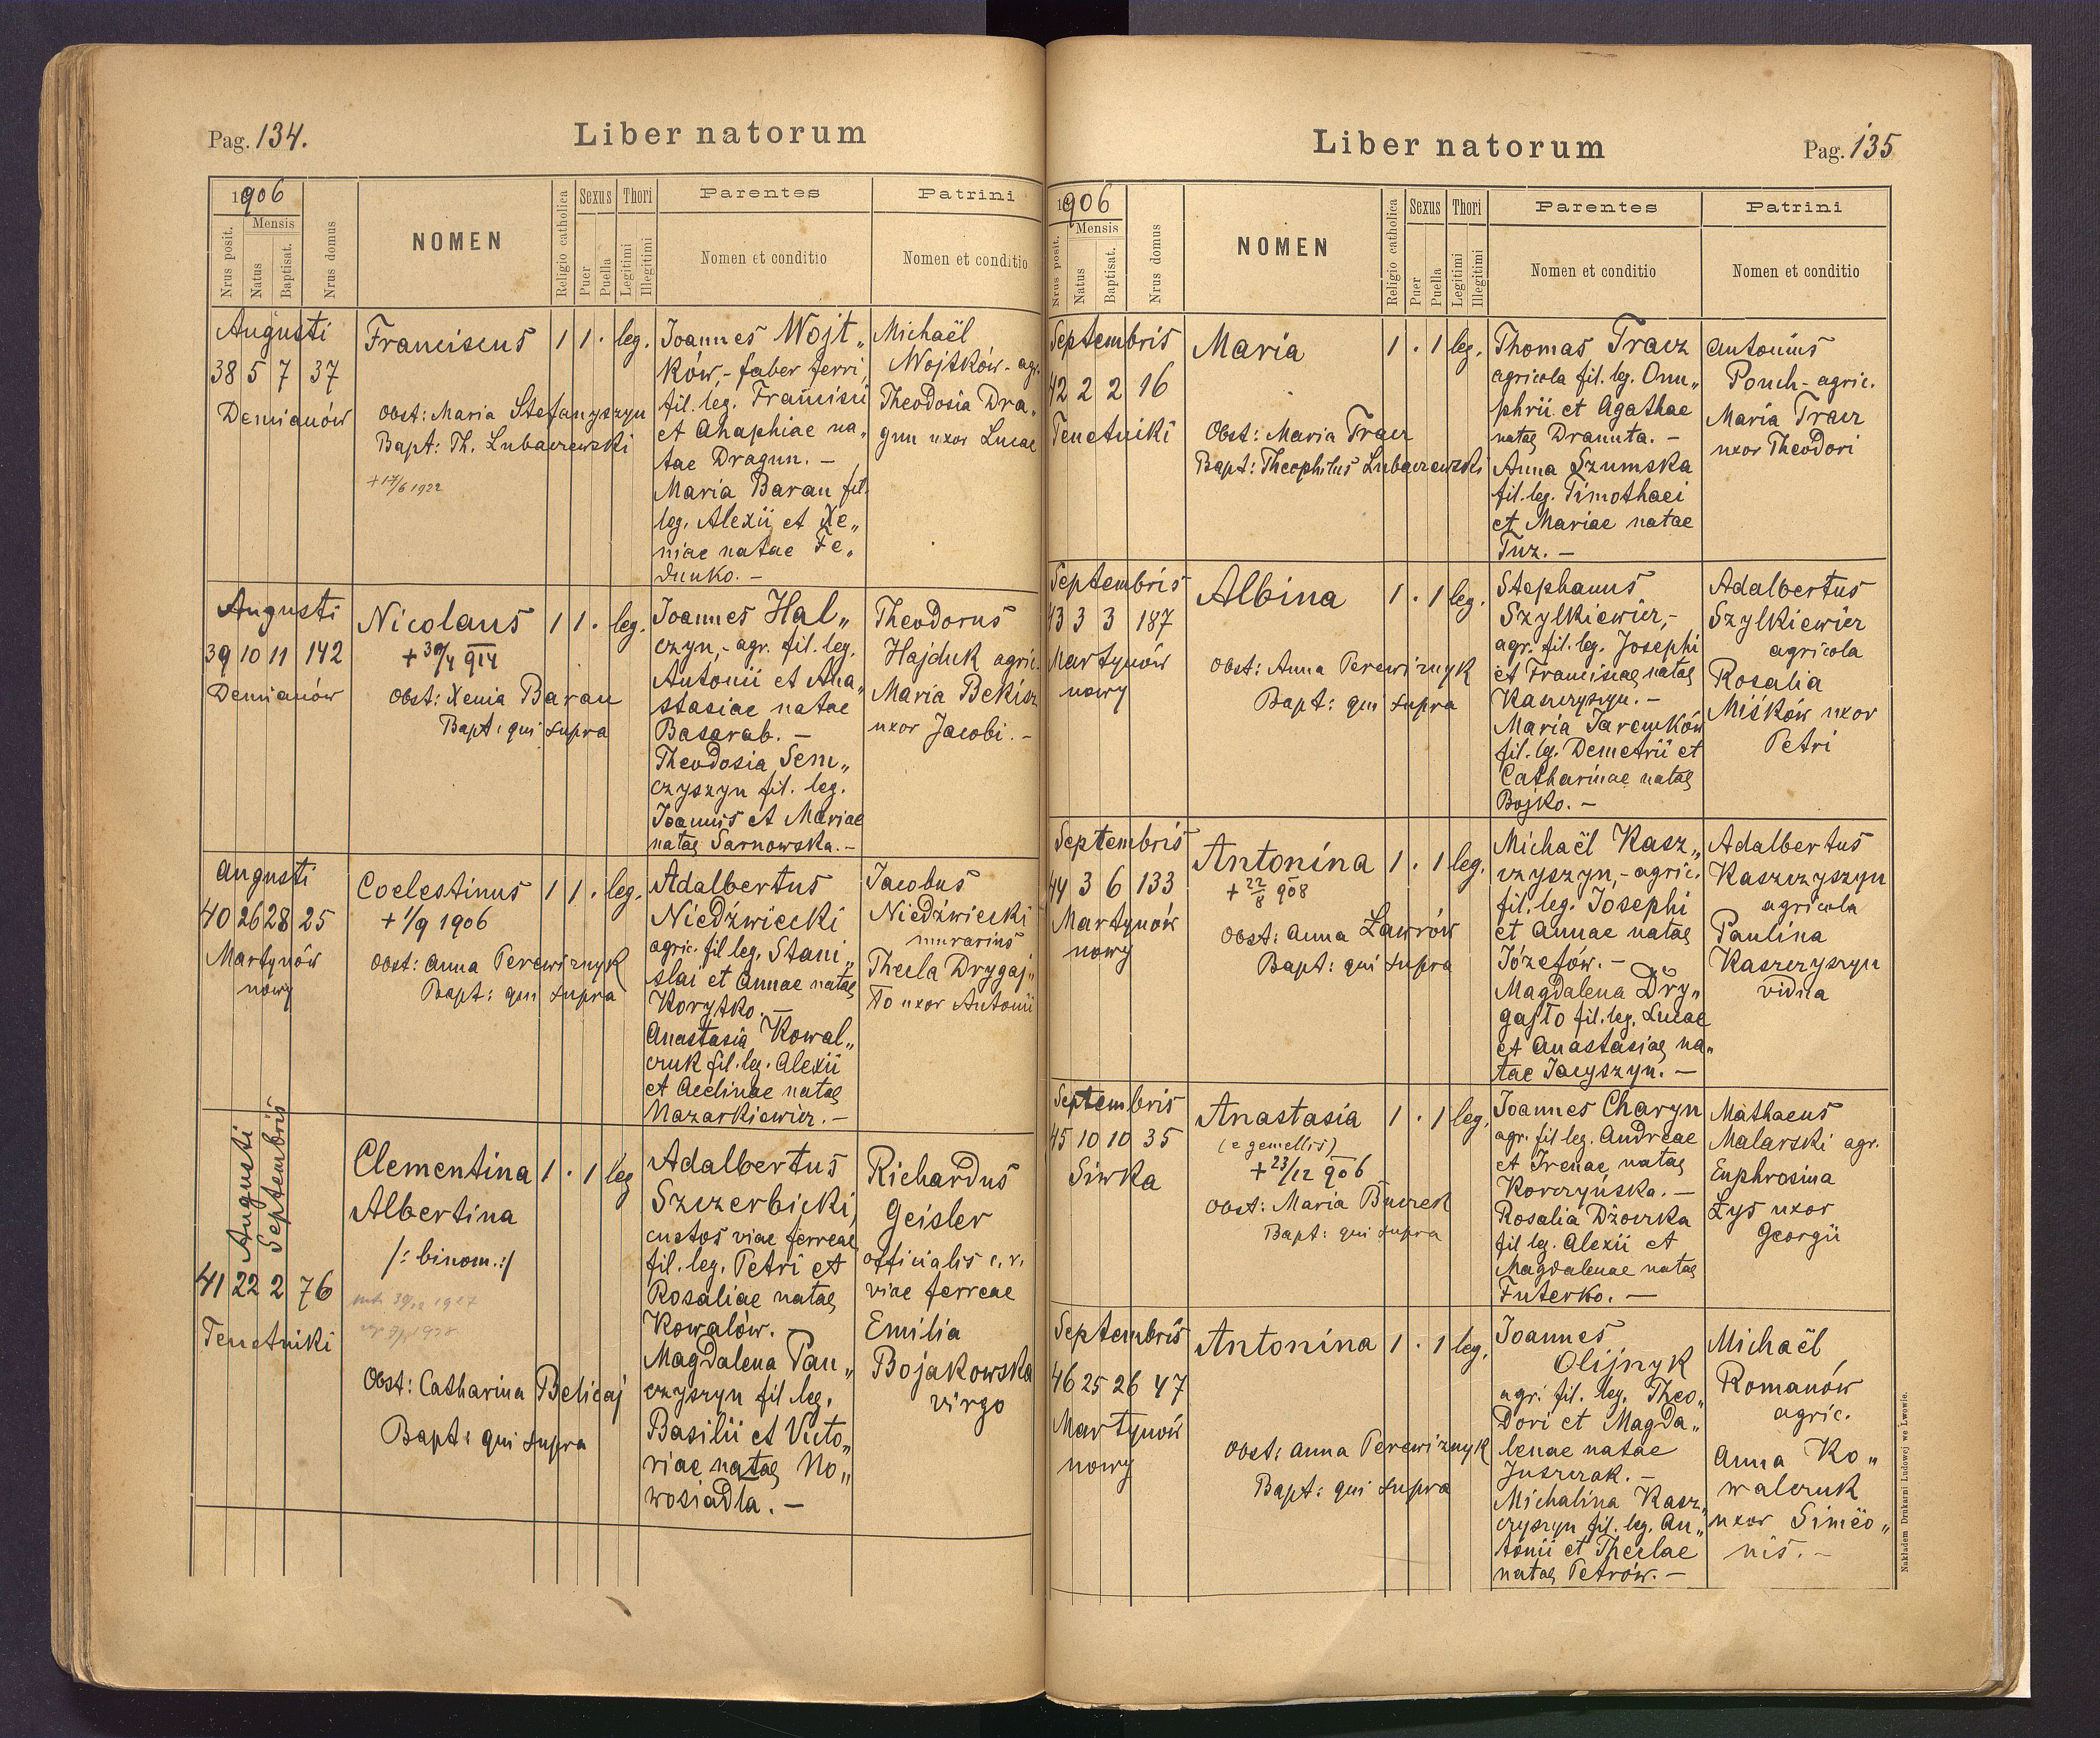 Pag. 134.
Liber natorum
1906
Mensis
Nrus posit.
Natus
Baptisat.
Nrus domus
NOMEN
Religio catholica
Sexus
Puer
Puella
Thori
Legitimi
Illegitimi
Parentes
Nomen et conditio
Patrini
Nomen et conditio
Augusti
38 5 7 37
Demianów
Franciscus
Obst: Maria Stefanyszyn
Bapt: Th. Lubaczewski
+ 17/6 1922
1 1 . leg.
Joannes Wojt„
ków,- faber ferri,
fil. leg. Francisci
et Ahaphiae na„
tae Dragun. –
Maria Baran fil.
leg. Alexii et Xe„
niae natae Fe„
dunko. –
Michaël
Wojtków - agr.
Theodosia Dra„
gun uxor Lucae
Augusti
39 10 11 142
Demianów
Nicolaus
+ 30/4 914
Obst: Xenia Baran
Bapt: qui supra
1 1 . leg.
Joannes Hal„
czyn,- agr. fil. leg.
Antonii et Ana„
stasiae natae
Basarab. –
Theodosia Sem„
czyszyn fil. leg.
Joannis et Mariae
natae Sarnowska. –
Theodorus
Hajduk agric.
Maria Bekisz
uxor Jacobi. –
Augusti
40 26 28 25
Martynów
nowy
Coelestinus
+ 1/9 1906
Obst: Anna Perewiznyk
Bapt: qui supra
1 1 . leg.
Adalbertus
Niedźwiecki
agric. fil. leg. Stani„
slai et Annae natae
Korytko. –
Anastasia Kowal„
czuk fil. leg. Alexii
et Acelinae natae
Nazarkiewicz. –
Jacobus
Niedźwiecki
murarius
Thecla Drygaj„
ło uxor Antonii
Augusti
Septembris
41 22 2 76
Tenetniki
Clementina
Albertina
/: binom. :/
Obst: Catharina Belicaj
Bapt: qui supra
1 . 1 leg
Adalbertus
Szczerbicki,
custos viae ferreae
fil. leg. Petri et
Rosaliae natae
Kowalów. –
Magdalena Pan„
czyszyn fil. leg.
Basilii et Victo„
riae natae No„
wosiadla. –
Richardus
Geisler
officialis c. r.
viae ferreae
Emilia
Bojakowska
virgo
Liber natorum
Pag. 135
1906
Mensis
Nrus posit.
Natus
Baptisat.
Nrus domus
NOMEN
Religio catholica
Sexus
Puer
Puella
Thori
Legitimi
Illegitimi
Parentes
Nomen et conditio
Patrini
Nomen et conditio
Septembris
42 2 2 16
Tenetniki
Maria
Obst: Maria Tracz
Bapt: Theophilus Lubaczewski
1 . 1 leg.
Thomas Tracz
agricola fil. leg. Onu„
phrii et Agathae
natae Dranuta. –
Anna Szumska
fil. leg. Timothaei
et Mariae natae
Tuz. –
Antonius
Pouch - agric.
Maria Tracz
uxor Theodori
Septembris
43 3 3 187
Martynów
nowy
Albina
Obst: Anna Perewiznyk
Bapt: qui supra
1 . 1 leg.
Stephanus
Szylkiewicz,-
agr. fil. leg. Josephi
et Franciscae natae
Kaszczyszyn. –
Maria Jaremków
fil. lg. Demetrii et
Catharinae natae
Bojko. –
Adalbertus
Szylkiewicz
agricola
Rosalia
Miśków uxor
Petri
Septembris
44 3 6 133
Martynów
nowy
Antonina
+ 22/8 908
Obst: Anna Ławrów
Bapt: qui supra
1 . 1 leg.
Michaël Kasz„
czyszyn,- agric.
fil. leg. Josephi
et Annae natae
Józefów. –
Magdalena Dry„
gajło fil. leg. Lucae
et Anastasiae na„
tae Jacyszyn. –
Adalbertus
Kaszczyszyn
agricola
Paulina
Kaszczyszyn
vidua
Septembris
45 10 10 35
Siwka
Anastasia
(e gemellis)
+ 23/12 906
Obst: Maria Buczek
Bapt: qui supra
1 . 1 leg.
Joannes Charyn
agr. fil leg. Andreae
et Irenae natae
Korczyńska. –
Rosalia Dżoczka
fil lg. Alexii et
Magdalenae natae
Futerko. –
Mathaeus
Malarski agr.
Euphrosina
Łys uxor
Georgii
Septembris
46 25 26 47
Martynów
nowy
Antonina
Obst: Anna Perewiznyk
Bapt: qui supra
1 . 1 leg.
Joannes
Olijnyk
agr. fil. leg. Theo„
dori et Magda„
lenae natae
Juszczak. –
Michalina Kasz„
czyszyn fil. leg. An„
tonii et Theclae
natae Petrów. –
Michaël
Romanów
agric.
Anna Ko„
walczuk
uxor Simëo„
nis. –
Nakładem Drukarni Ludowej we Lwowie.